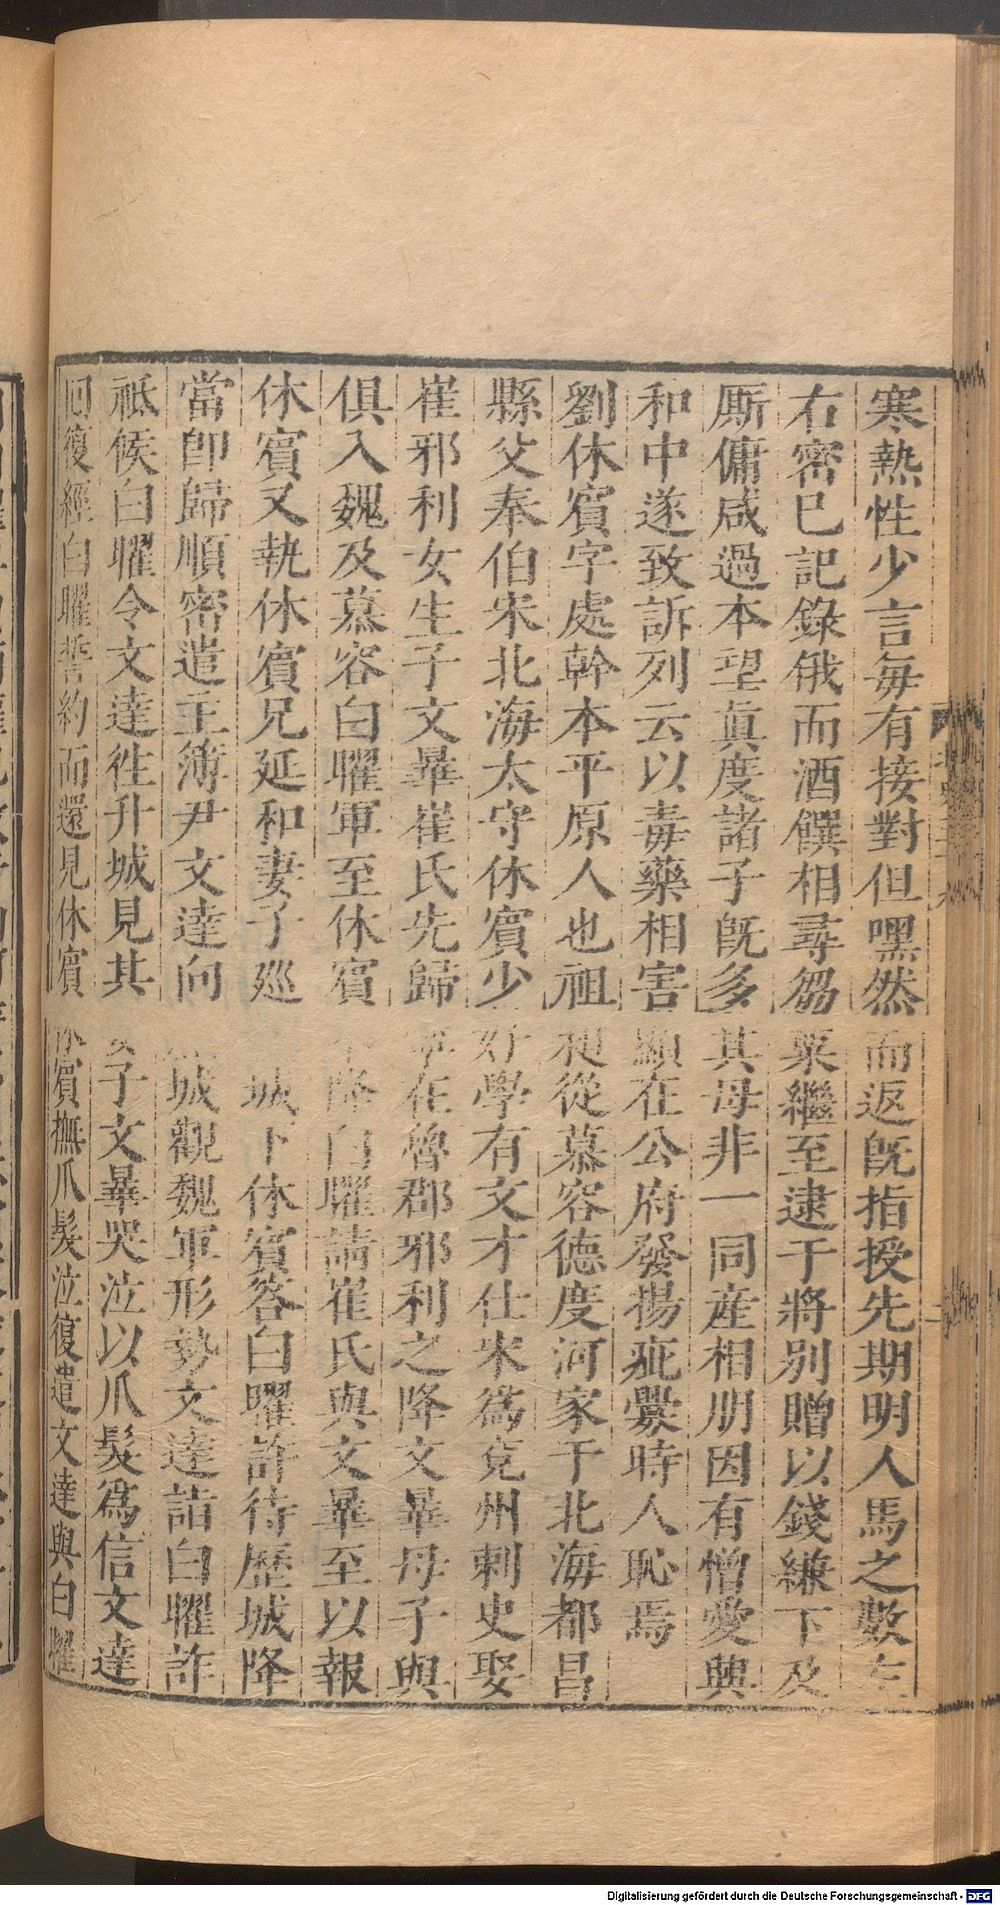 寒熱性少言每有接對但嘿然而返旣指授先期明人馬之數左
右密已記錄俄而酒饌相尋芻粟繼至逮于將別贈以錢縑下及
厮傭咸過本望眞度諸子旣多其母非一同產相朋因有憎愛興
和中遂致訴列云以毒藥相害顯在公府發揚疵釁時人恥焉
劉休賓字處幹本平原人也祖昶從慕容德度河家于北海都昌
縣父奉伯宋北海太守休賓少好學有文才仕宋爲兗州刺史娶
崔邪利女生子文曅崔氏先歸寧在魯郡邪利之降文曅母子與
俱入魏及慕容白曜軍至休賓不降白曜請崔氏與文曅至以報
休賓又執休賓兄延和妻子巡城下休賓答白曜許待歷城降
當卽歸順密遣主簿尹文達向城觀魏軍形勢文達詣白曜詐
祗候白曜令文達往升城見其妻子文曅哭泣以爪髮爲信文達
回復經白曜誓約而還見休賓休賓撫爪髮泣復遣文達與白曜
Digitalisierung gefördert durch die Deutsche Forschungsgemeinschaft - DFG